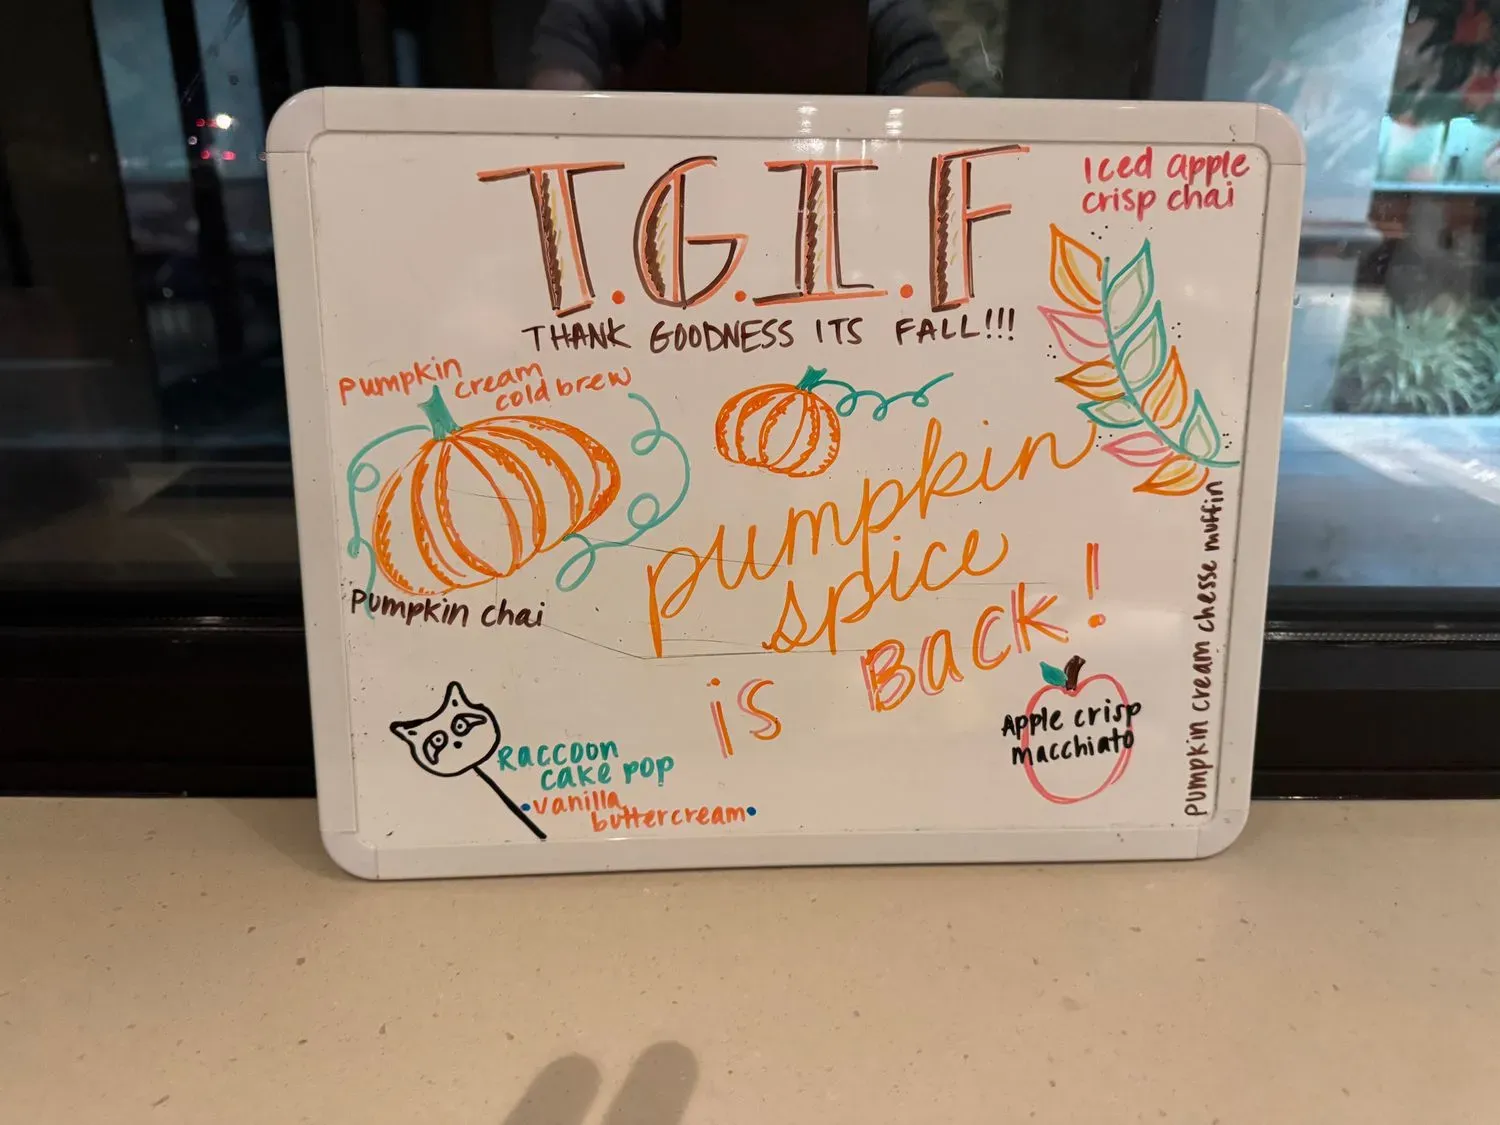 T.G.I.F
THANK GOODNESS ITS FALL!!!
Iced apple
crisp chai
pumpkin cream
cold brew
pumpkin chai
pumpkin
spice
is BACK!
Raccoon
cake pop
•vanilla
buttercream•
Apple crisp
macchiato
pumpkin cream chesse muffin